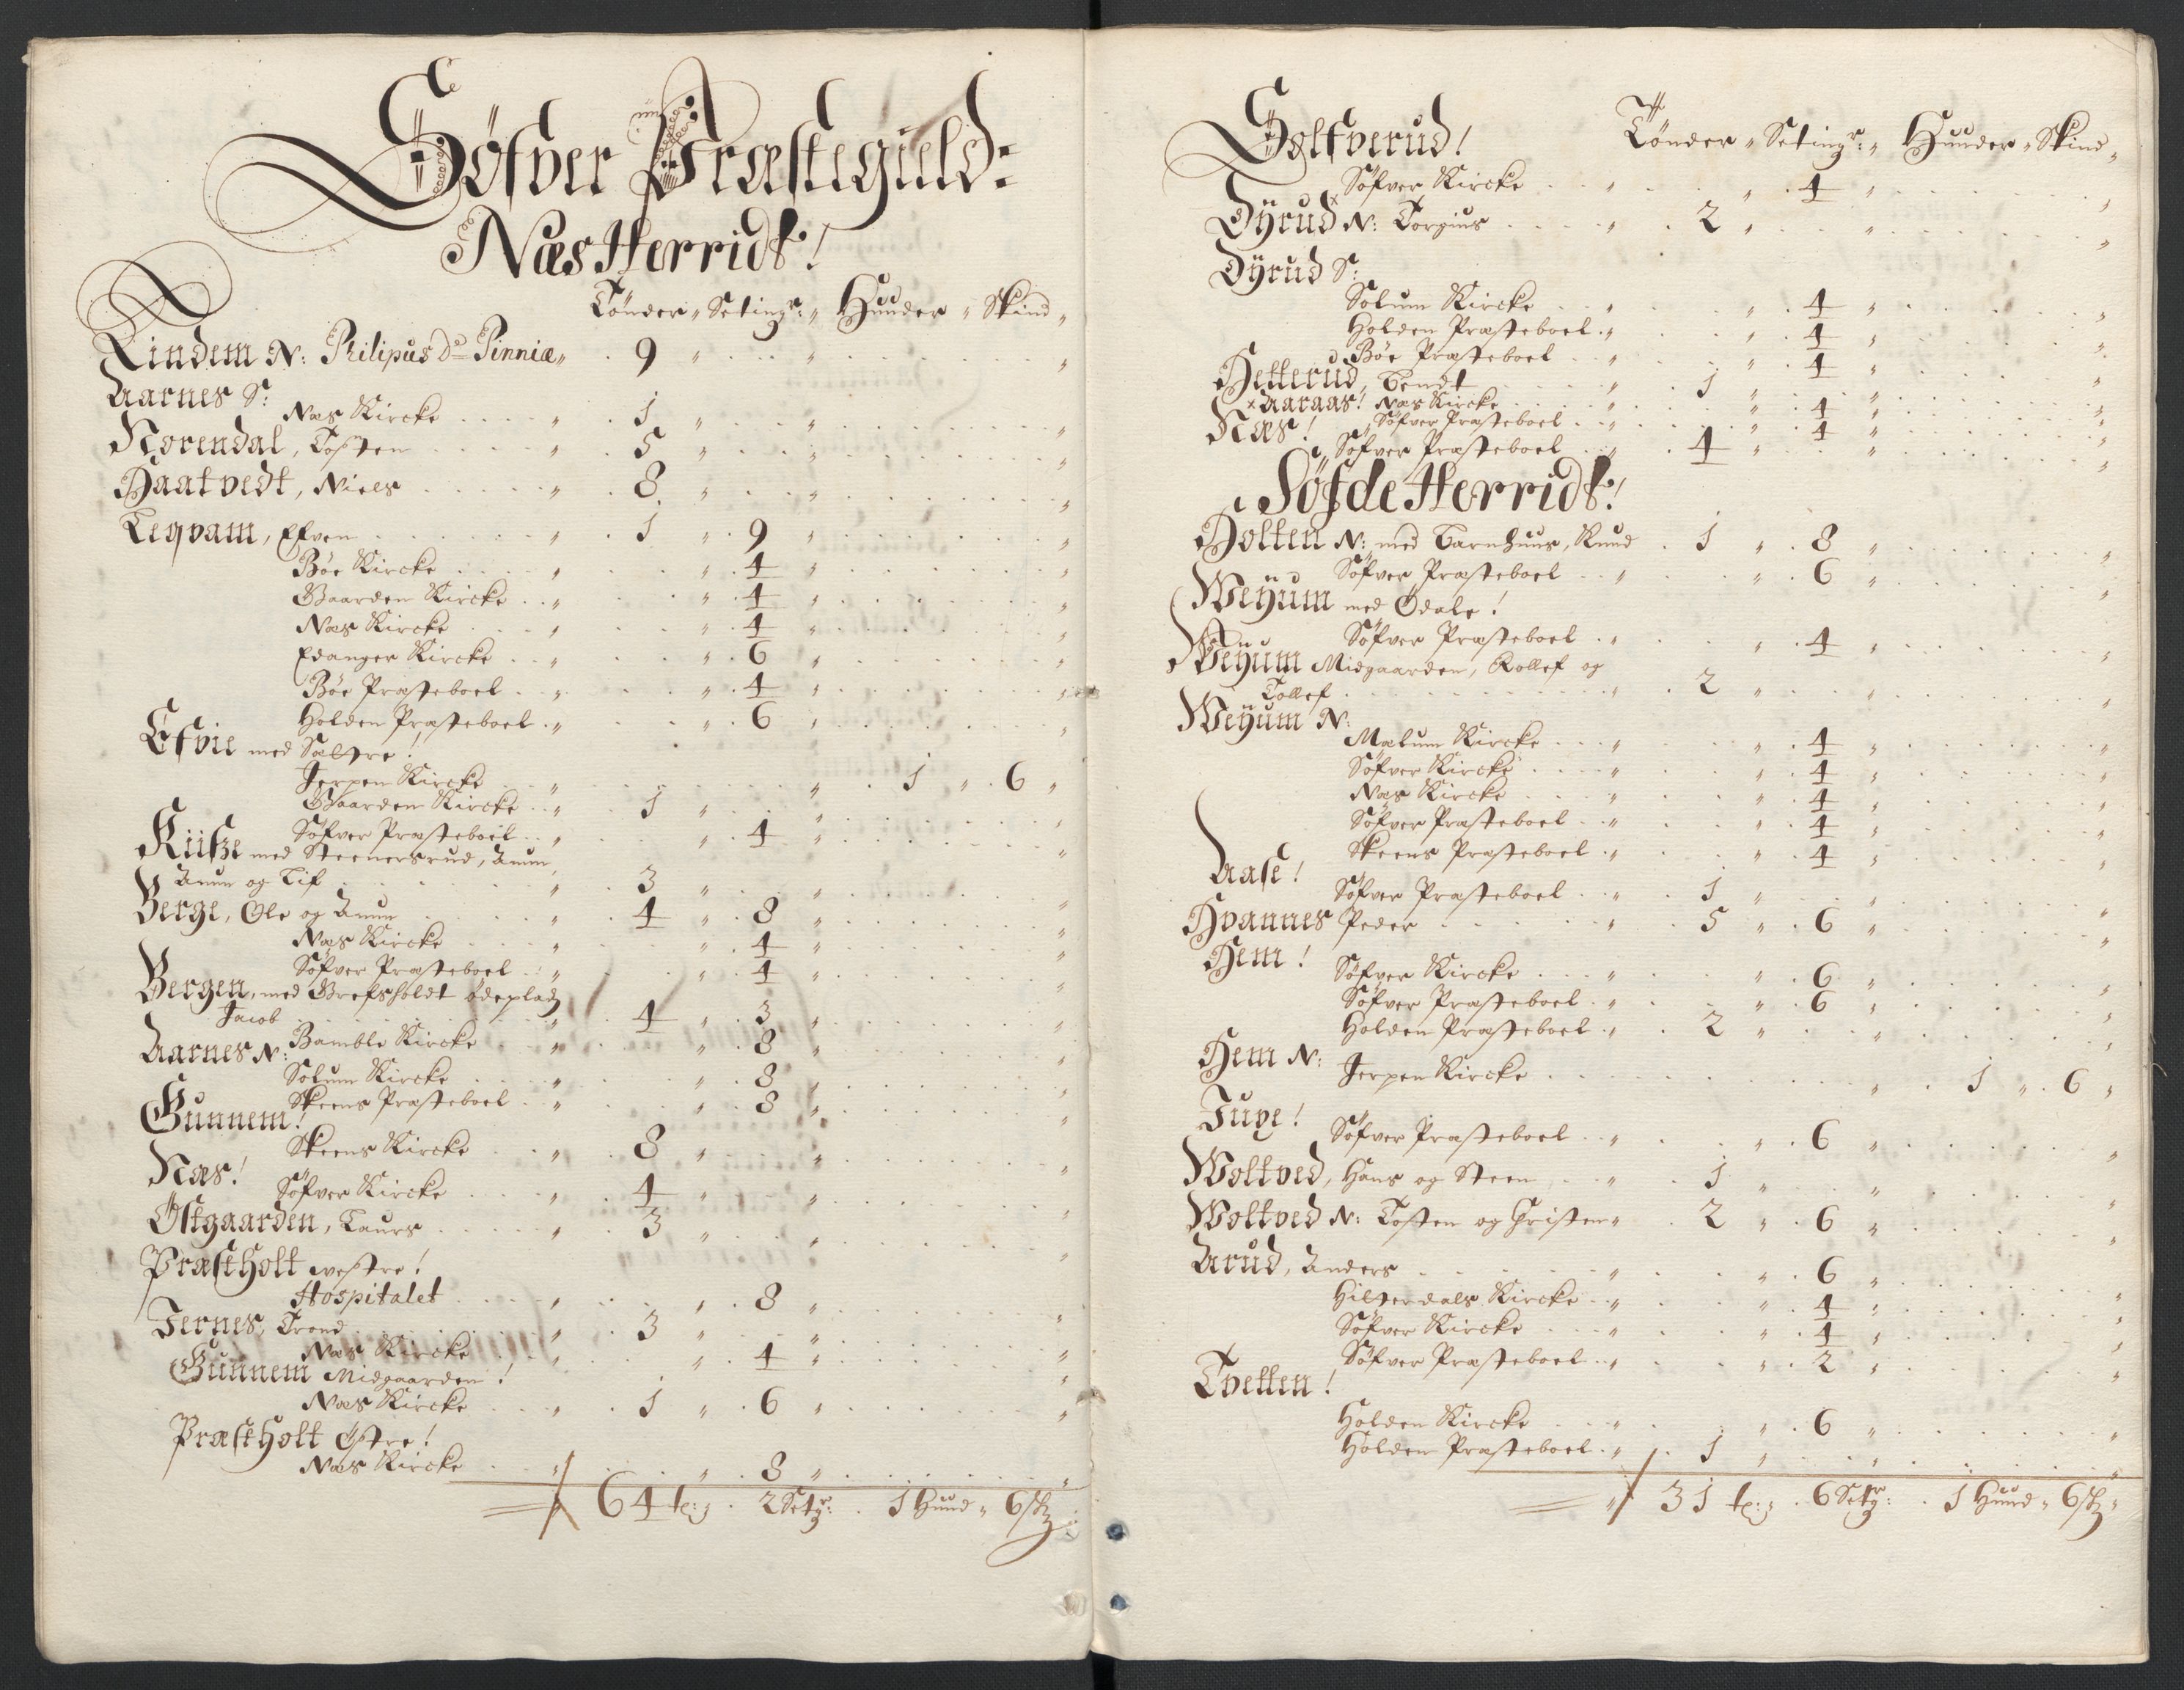 Söfver Præstegield:
Næs Herridt!
Tönder „ Setingr: „ Huuder „ Skind „
Lindem N: Philipus De Pinnia „ 9 „
Aarnes S:
Næs Kircke „ 1 „
Norendal, Tosten „ 5 „
Haatvedt, Niels „ 8 „
Leqvam, Efven „ 1 „ 9 „
Böe Kircke „ 4 „
Gaarden Kircke „ 4 „
Næs Kircke „ 4 „
Edanger Kircke „ 6 „
Böe Præsteboel „ 4 „
Holden Præsteboel „ 6 „
Efvie med Saltre!
Jerpen Kircke „ 1 „ 6 „
Gaarden Kircke „ 1 „
Söfver Præsteboel „ 4 „
Riiße med Steenersrud, Anun,
Anun og Lif „ 3 „
Berge, Ole og Anun „ 4 „ 8 „
Næs Kircke „ 4 „
Söfver Præsteboel „ 4 „
Bergen, med Grefsholdt ödeplads
Jacob „ 4 „ 3 „
Aarnes N: Bamble Kircke „ 8 „
Solum Kircke „ 8 „
Skeens Præsteboel „ 8 „
Gunnem!
Skeens Kircke „ 8 „
Næs!
Söfver Kircke „ 4 „
Östgaarden, Laurs „ 3 „
Præstholt westre!
Hospitalet „ 8 „
Jernes, Trond „ 3 „
Næs Kircke „ 4 „
Gunnem Midgaarden!
Næs Kircke „ 1 „ 6 „
Præstholt östre!
Næs Kircke „ 8 „
64 t: „ 2 Setgr: 1 Huud „ 6 sk
Holtverud!
Tönder „ Setingr: „ Huuder „ Skind „
Söfver Kircke „ 4 „
Dÿrud N: Torgius „ 2 „
Dÿrud S:
Solum Kircke „ 4 „
Holden Præsteboel „ 4 „
Böe Præsteboel „ 4 „
Hetterud, Bendt „ 1 „
Aaraas! Næs Kircke „ 4 „
Söfver Præsteboel „ 4 „
Næs!
Söfver Præsteboel „ 4 „
Söfde Herridt!
Holten N: med Barnhuus, Knud 1 „ 8 „
Söfver Præsteboel „ 6 „
Weÿum med Ödale!
Söfver Præsteboel „ 4 „
Weÿum Midgaarden, Rollef og
Tollef „ 2 „
Weÿum N:
Mælum Kircke „ 4 „
Söfver Kircke „ 4 „
Næs Kircke „ 4 „
Söfver Præsteboel „ 4 „
Skeens Præsteboel „ 4 „
Aase!
Söfver Præsteboel „ 1 „
Hvannes Peder „ 5 „ 6 „
Hem!
Söfver Kircke „ 6 „
Söfver Præsteboel „ 6 „
Holden Præsteboel „ 2 „
Hem N:
Jerpen Kircke „ 1 „ 6 „
Tuve!
Söfver Præsteboel „ 6 „
Woltved, Hans og Steen „ 1 „
Woltved N: Tosten og Christen „ 2 „ 6 „
Arud, Anders „ 6 „
Hitterdals Kircke „ 4 „
Söfver Kircke „ 4 „
Söfver Præsteboel „ 2 „
Tvetten!
Holden Kircke „ 6 „
Holden Præsteboel „ 1 „
31 t: „ 6 Setgr: 1 Huud „ 6 sk „